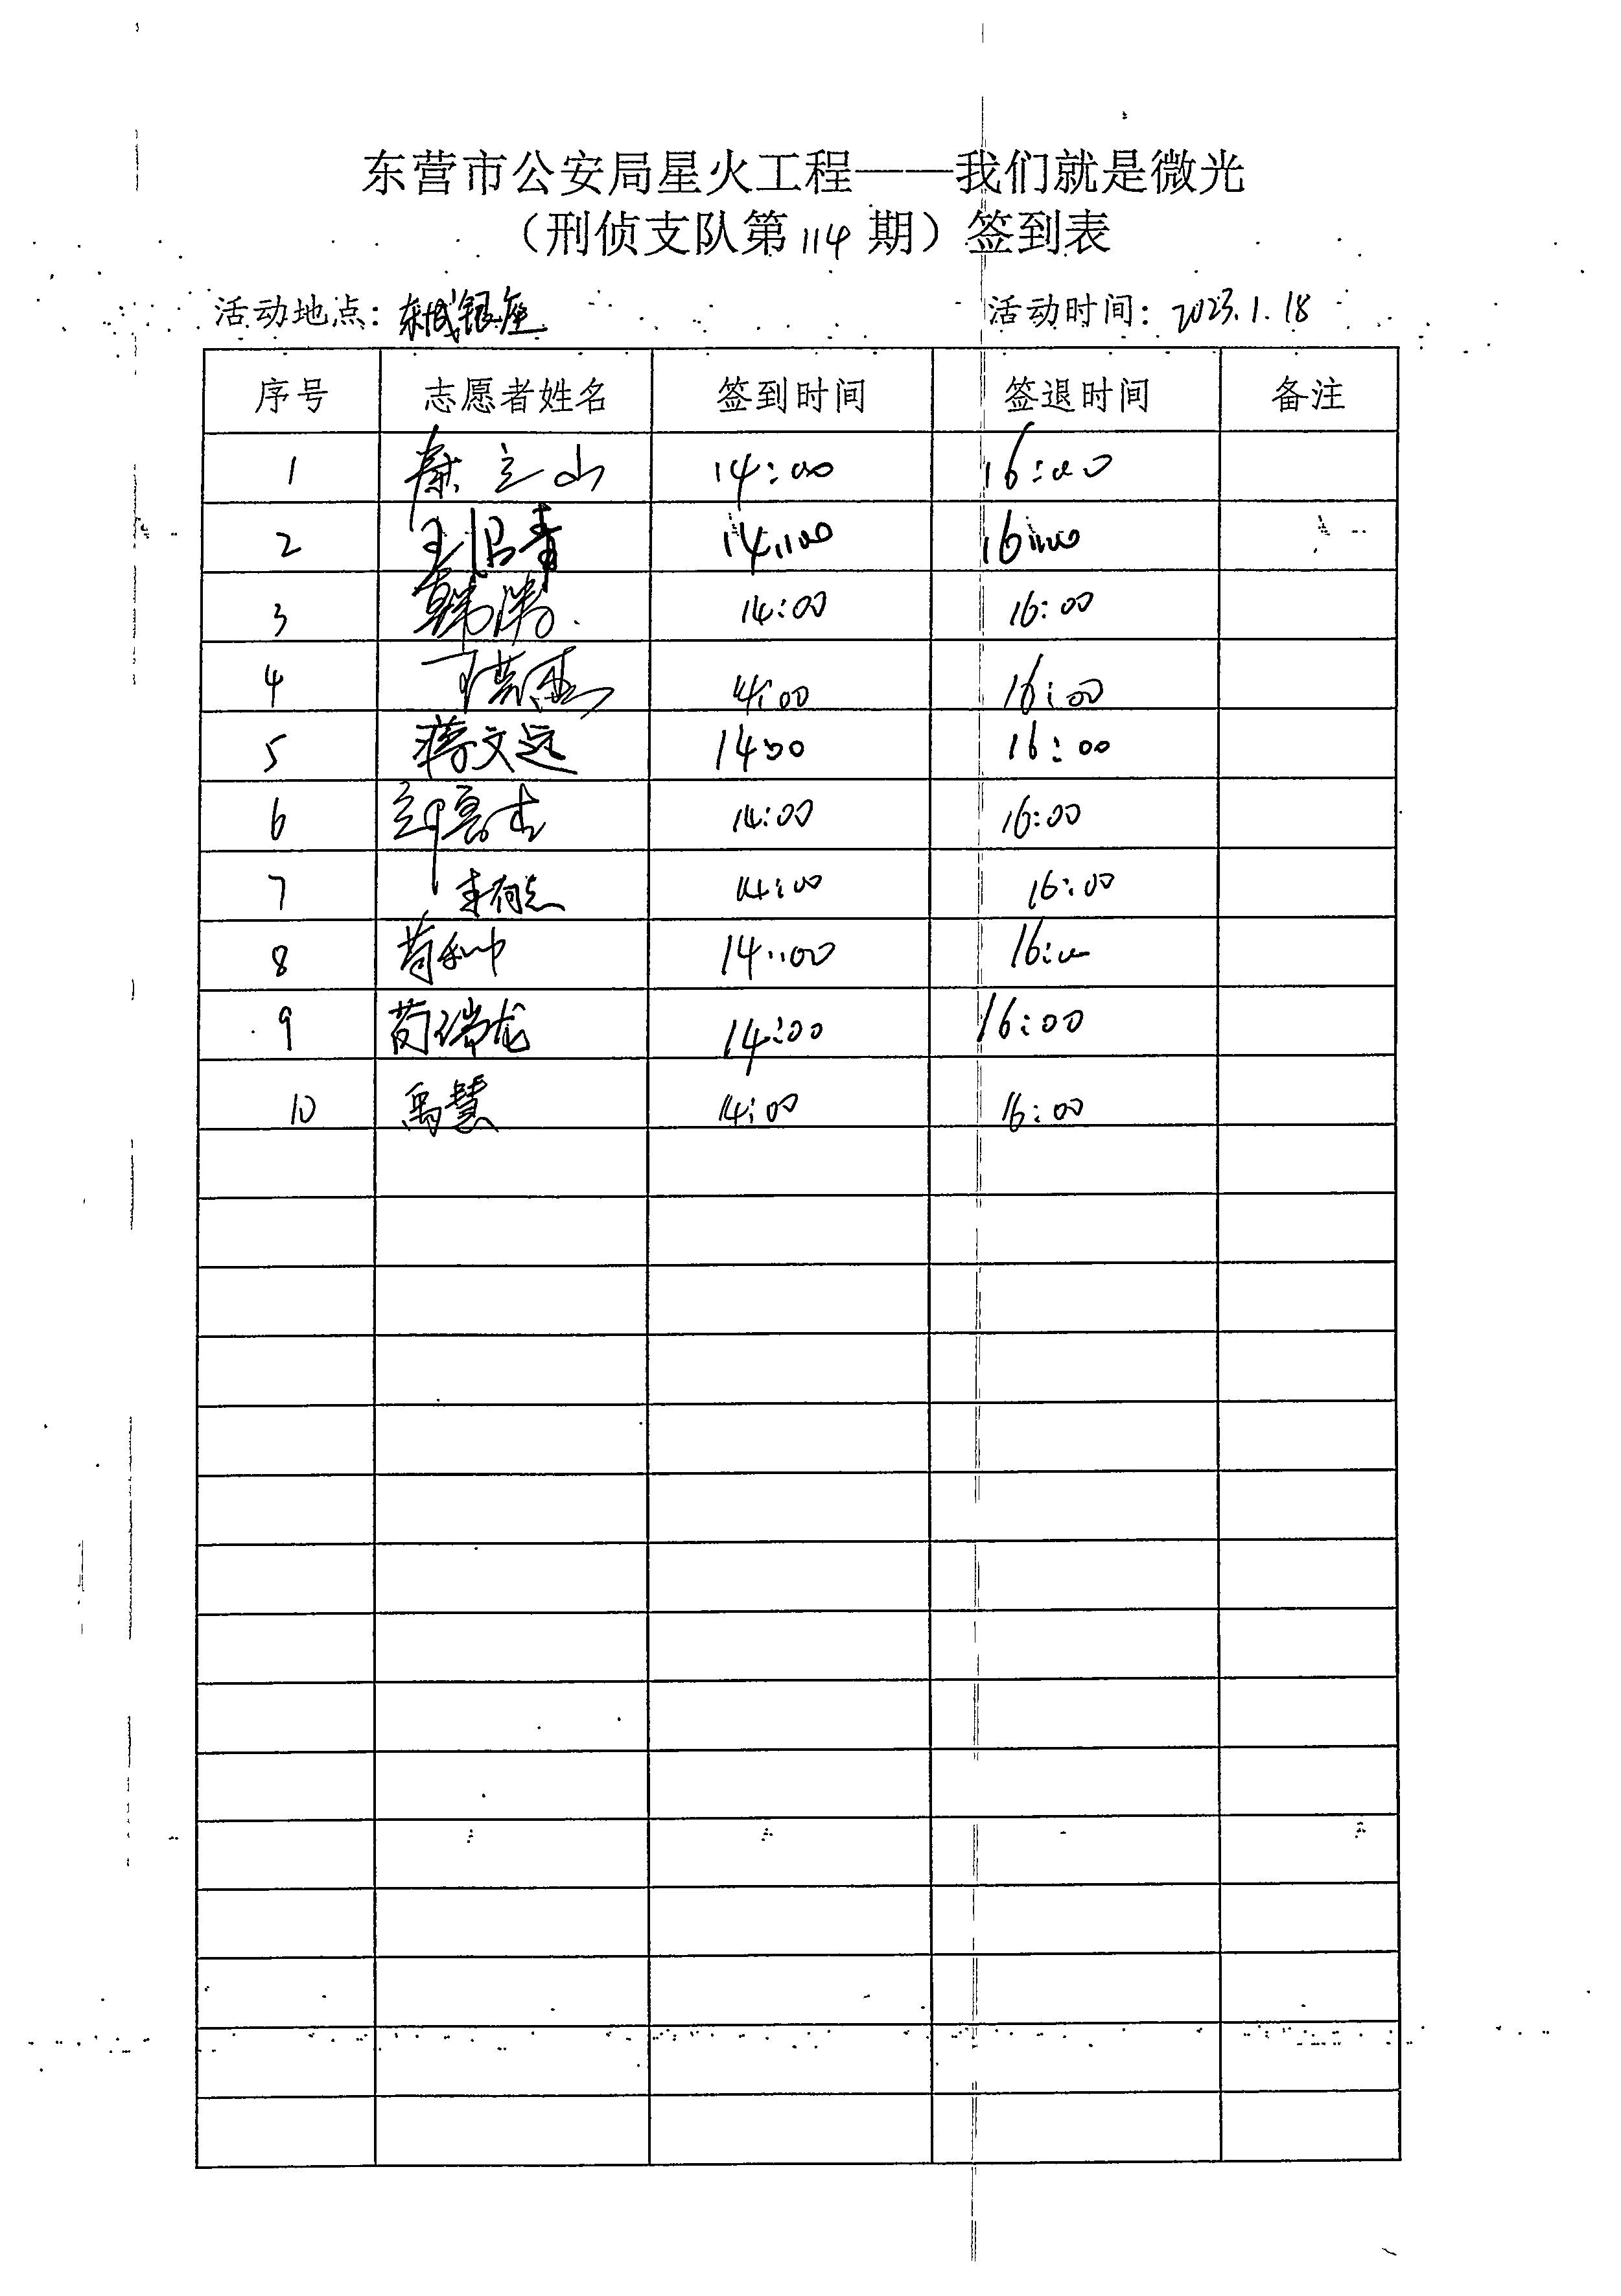 东营市公安局星火工程——我们就是微光
（刑侦支队第114期）签到表
活动地点：东城银座 活动时间：2023.1.18
序号 志愿者姓名 签到时间 签退时间 备注
1 立山 14:00 16:00
2 王 青 14:00 16:00
3 韩 14:00 16:00
4 14:00 16:00
5 蒋文远 14:00 16:00
6 14:00 16:00
7 14:00 16:00
8 苟和中 14:00 16:00
9 苟瑞龙 14:00 16:00
10 禹慧 14:00 16:00